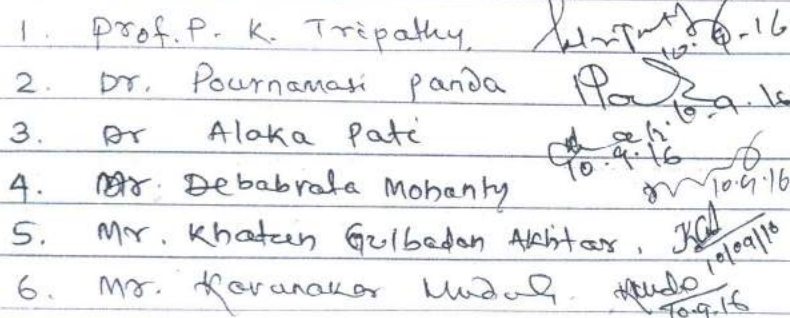 1. Prof. P. K. Tripathy 10.9.16
2. Dr. Pournamasi Panda 10.9.16
3. Dr Alaka Pati 10.9.16
4. Mr. Debabrata Mohanty 10.9.16
5. Mr. Khatun Gulbadan Akhtar. 10/09/16
6. Mr. Karunakar 10.9.16